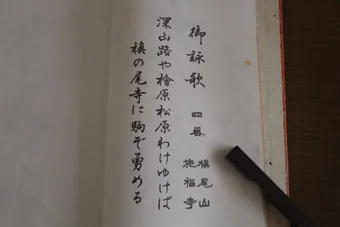 御詠歌 四番 槙尾山
施福寺
深山路や檜原松原わけゆけば
槙の尾寺に駒ぞ勇める